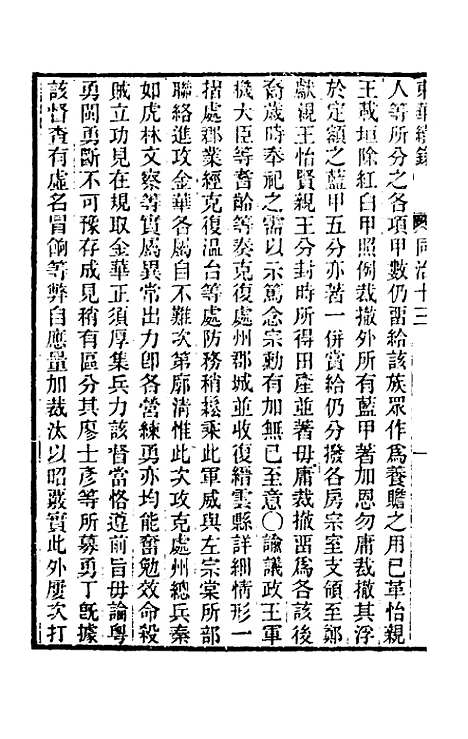 東華續錄 同治十三 一
人等所分之各項甲數仍畱給該族眾作爲養贍之用已革怡親
王載垣除紅白甲照例裁撤外所有藍甲著加恩勿庸裁撤其浮
於定額之藍甲五分亦著一併賞給仍分撥各房宗室支領至鄭
獻親王怡賢親王分封時所得田產並著毋庸裁撤畱爲各該後
裔歲時奉祀之需以示篤念宗勳有加無已至意〇諭議政王軍
機大臣等耆齡等奏克復處州郡城並收復縉雲縣詳細情形一
摺處郡業經克復溫台等處防務稍鬆乘此軍威與左宗棠所部
聯絡進攻金華各屬自不難次第廓清惟此次攻克處州總兵秦
如虎林文察等實屬異常出力卽各營練勇亦均能奮勉效命殺
賊立功見在規取金華正須厚集兵力該督當恪遵前旨毋論粵
勇閩勇斷不可豫存成見稍有區分其廖士彥等所募勇丁旣據
該督查有虛名冒餉等弊自應量加裁汰以昭覈實此外屢次打